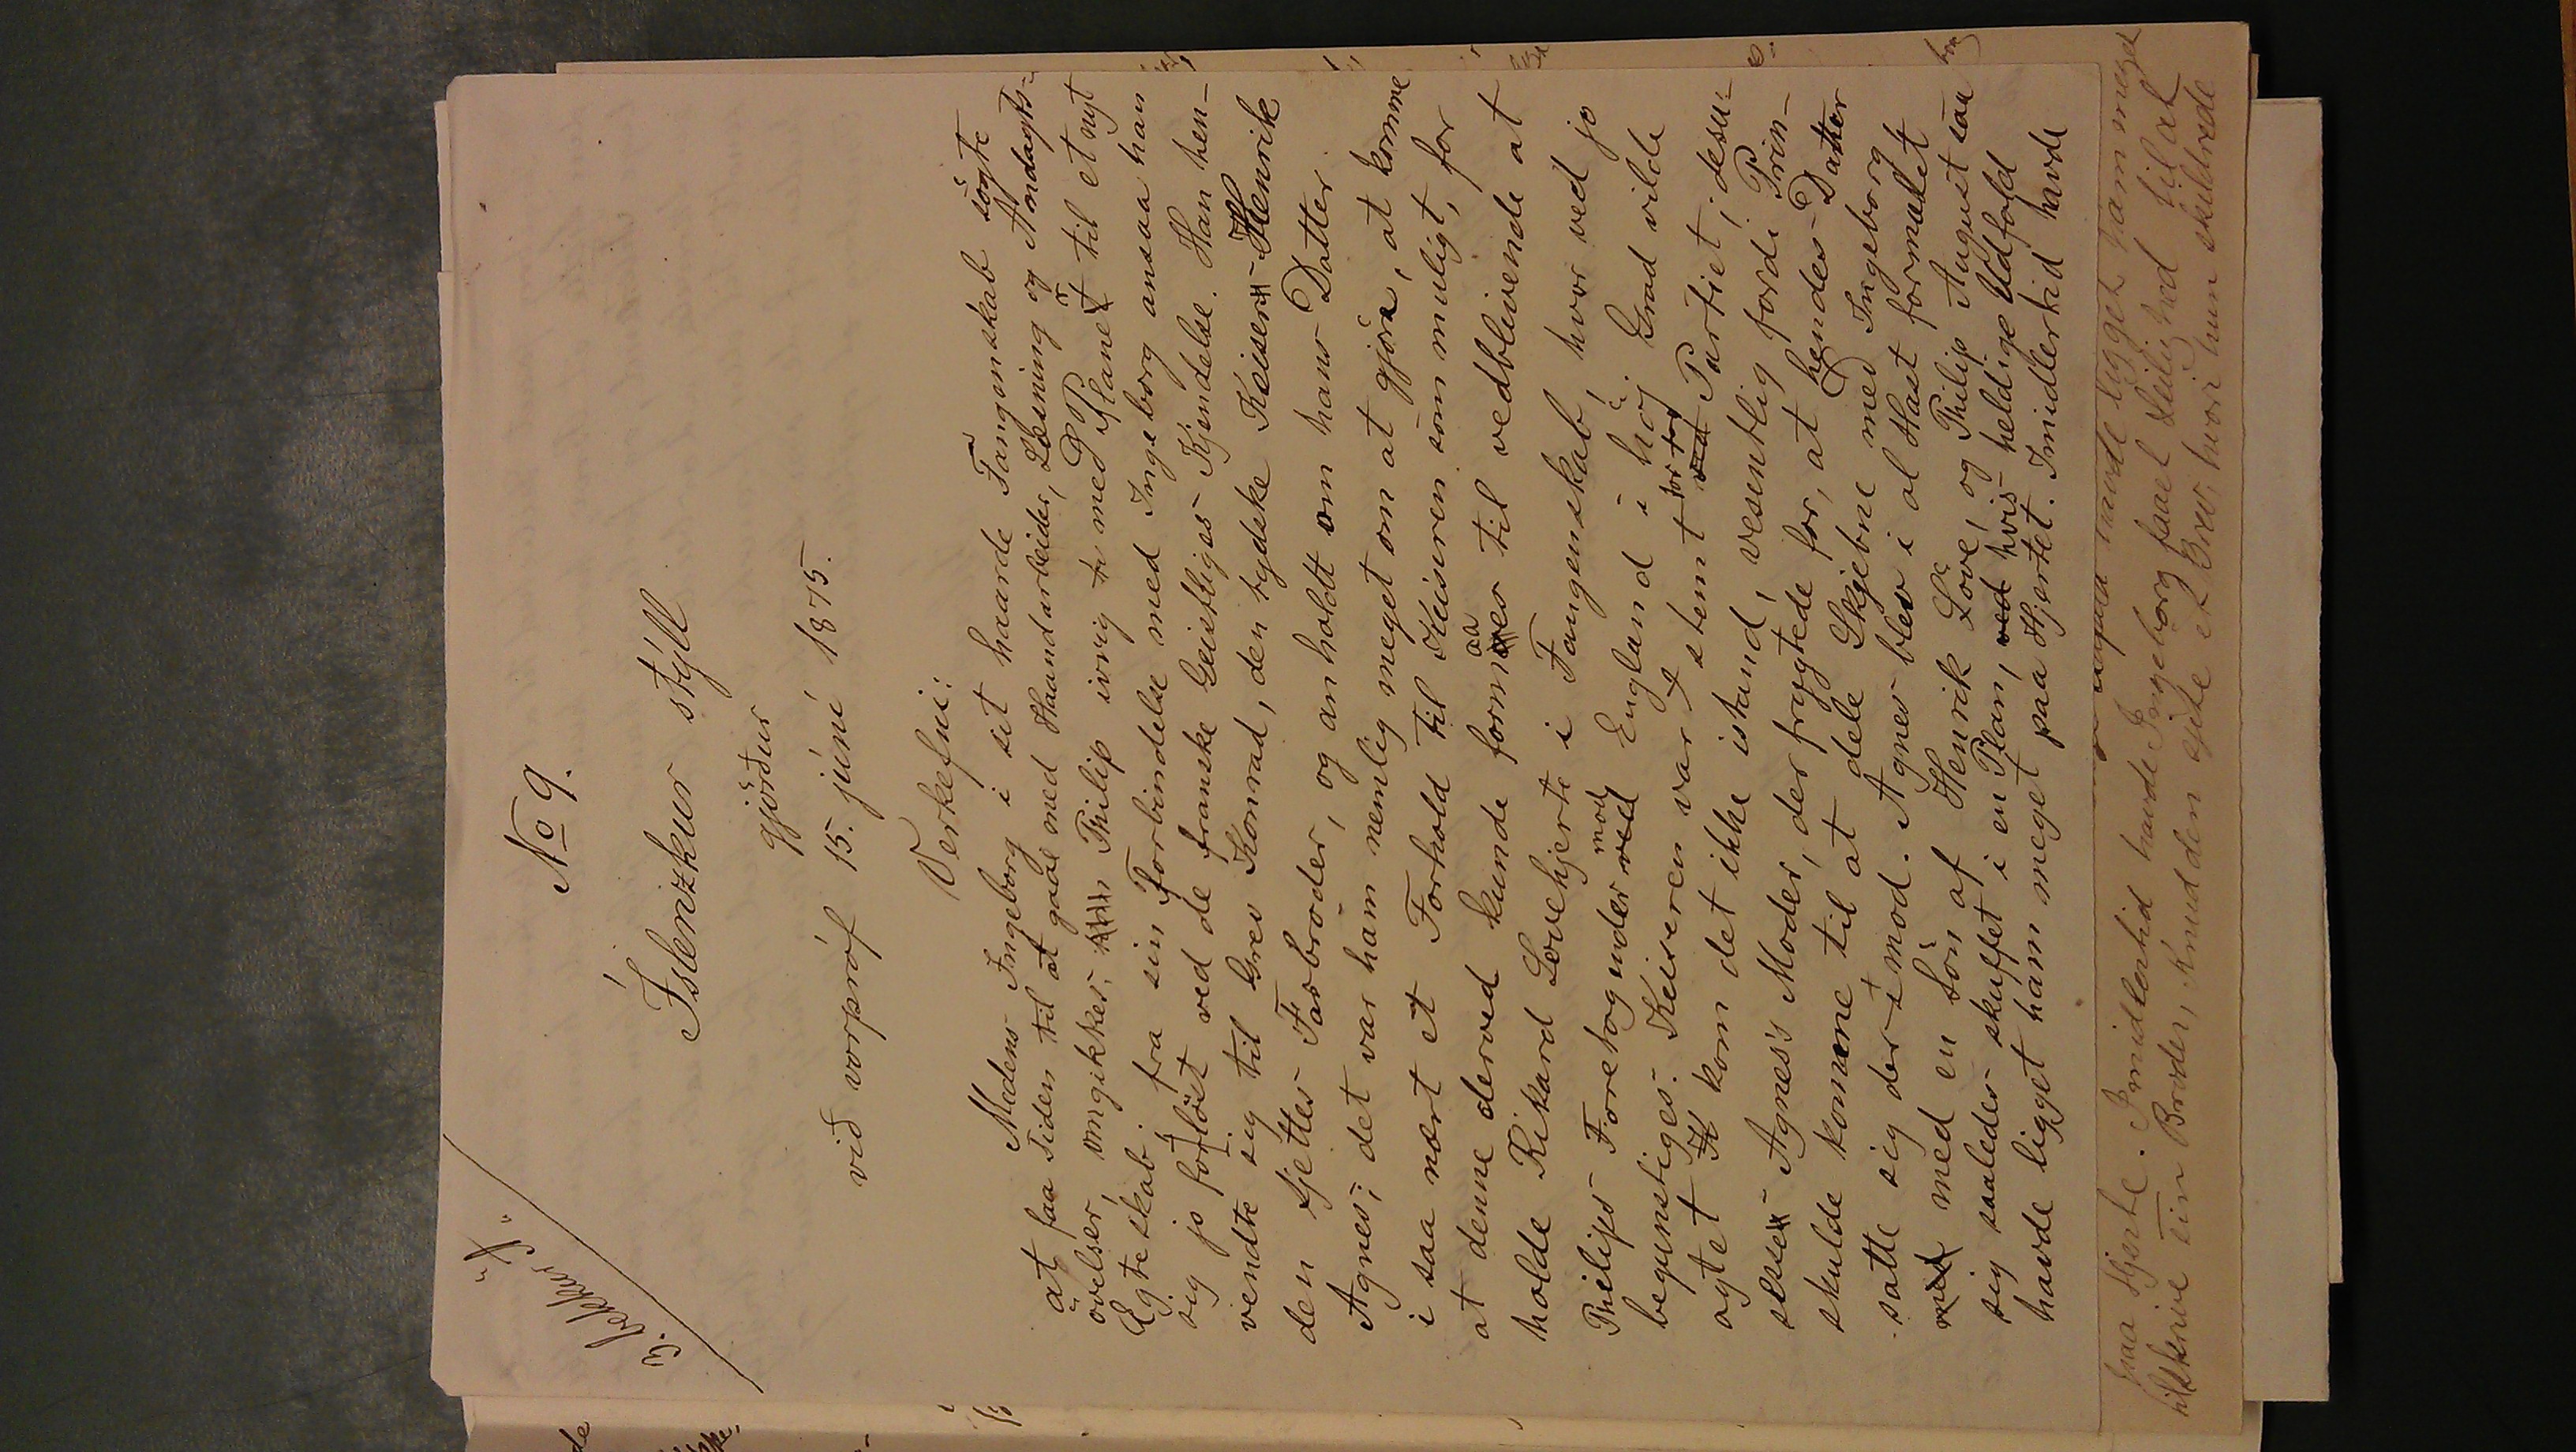 3. bekkur A.
No 9.
Íslenzkur stýll
gjörður
við vorpróf 15. júní 1875.
Verkefni:
Madens Ingeborg i sit haarde Fangenskab sögte
at faa Tiden til at gaae med Haandarbeider, Læsning og Andagts-
övelser, omgikkes Philip ivrig med Planer til et nyt
Ægteskab. fra sin Forbindelse med Ingeborg ansaa han
sig jo forlöst ved de franske Geistliges Kjendelse. Han hen-
vendte sig til Grev Konrad, den tydske Keiser Henrik
den Sjettes Farbroder, og anholdt om hans Datter
Agnes; det var ham nemlig meget om at gjöre, at komme
i saa nært et Forhold til Keiseren som muligt, for
at denne derved kunde formaaes til vedblivende at
holde Rikard Lövehjerte i Fangenskab, hvor ved jo
Philips Foretog ender mod England i höj Grad vilde
begunstiges. Keiseren var stemt for Partiet; desu-
agtet kom det ikke istand, vesentlig fordi Prin-
sesse Agnes's Moder, der frygtede for, at hendes Datter
skulde komme til at dele Skjebne med Ingeborg
satte sig der imod. Agnes blev i al Hast formælet
med en Sön af Henrik Löve, og Philip August saa
sig saaledes skuffet i en Plan, hvis heldige Udfald
havde ligget ham meget paa Hjertet. Imidlertid havde
havde ligget ham meget
paa Hjerte. Imidlertid havde Ingeborg faaet Leilighed til at
tilskrive sin Broder, Knud den sjette et Brev, hvori hun skildrede